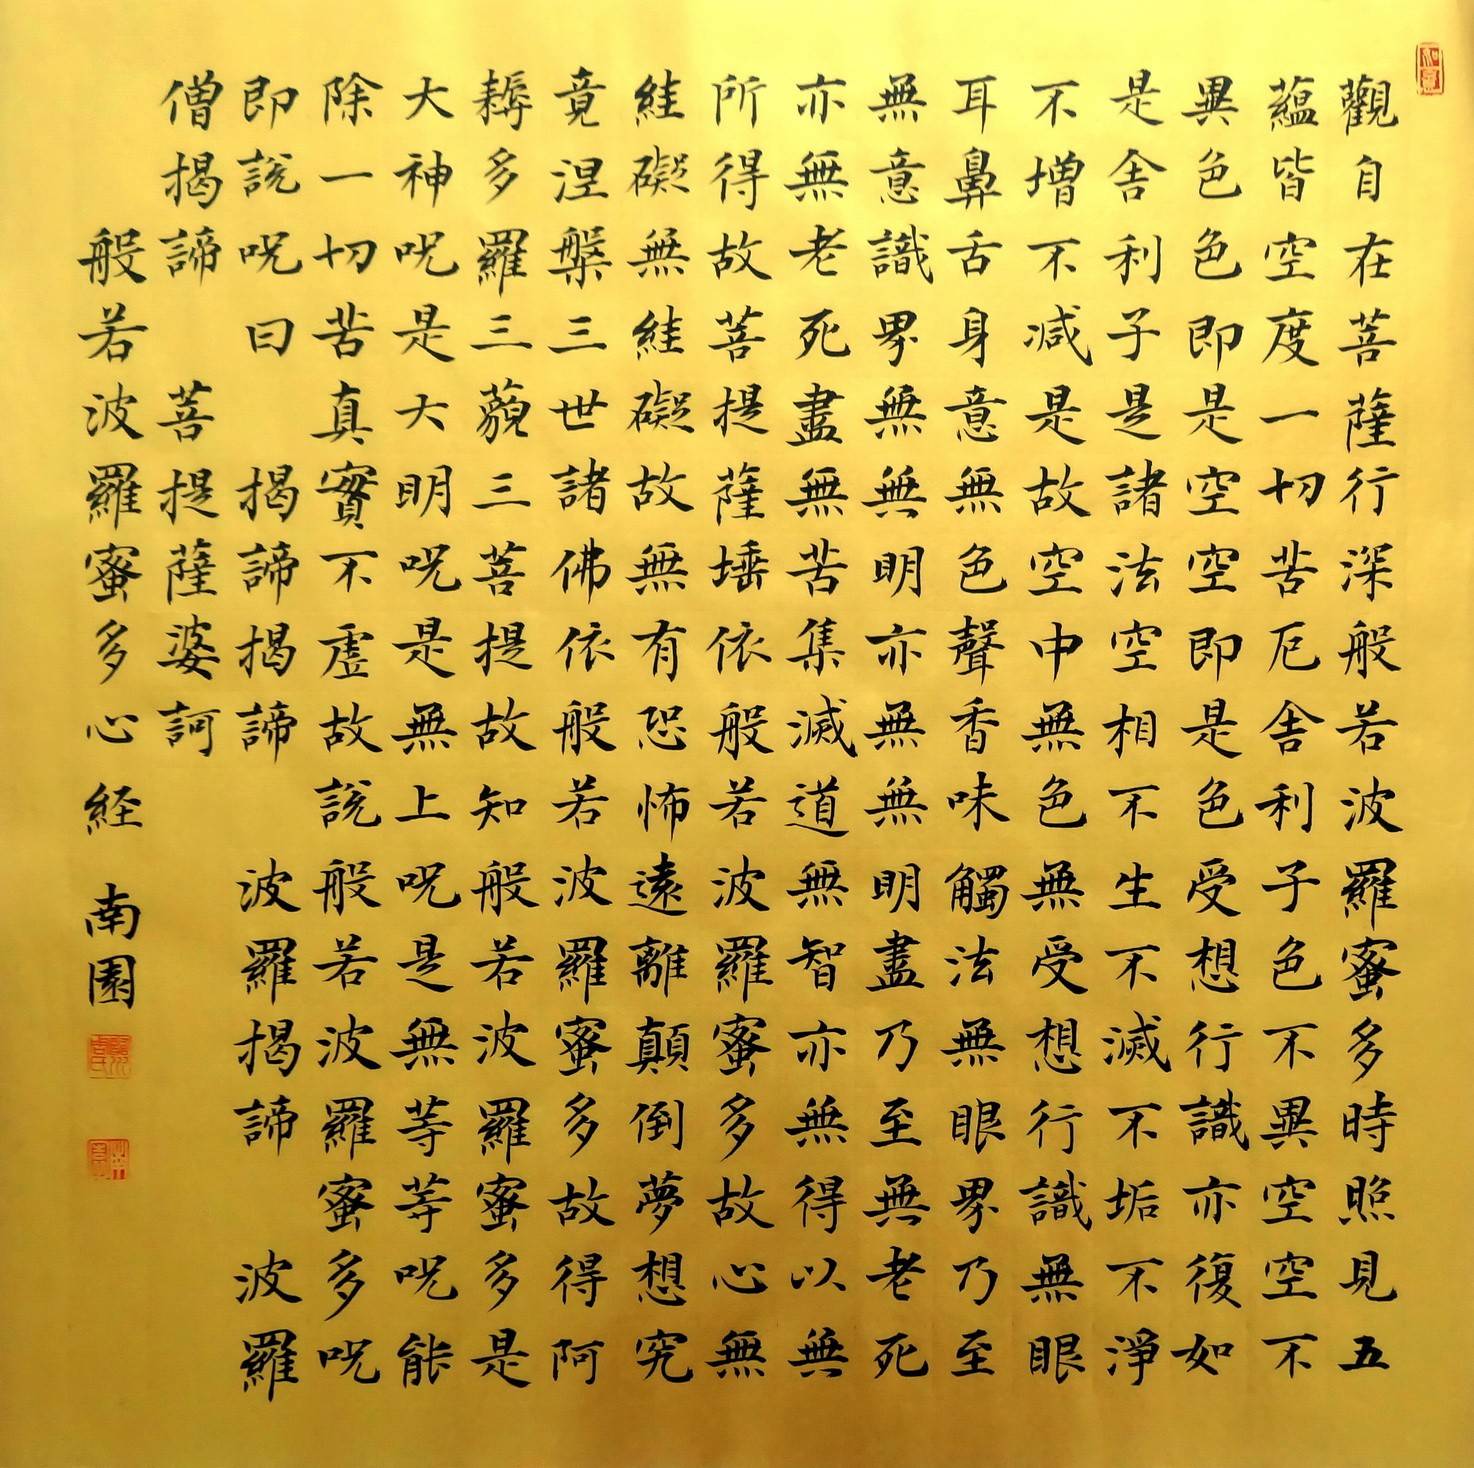 觀自在菩薩行深般若波羅蜜多時照見五
蘊皆空度一切苦厄舍利子色不異空空不
異色色即是空空即是色受想行識亦復如
是舍利子是諸法空相不生不滅不垢不淨
不增不減是故空中無色無受想行識無眼
耳鼻舌身意無色聲香味觸法無眼界乃至
無意識界無無明亦無無明盡乃至無老死
亦無老死盡無苦集滅道無智亦無得以無
所得故菩提薩埵依般若波羅蜜多故心無
絓礙無絓礙故無有恐怖遠離顛倒夢想究
竟涅槃三世諸佛依般若波羅蜜多故得阿
耨多羅三藐三菩提故知般若波羅蜜多是
大神呪是大明呪是無上呪是無等等呪能
除一切苦真實不虛故說般若波羅蜜多呪
即說呪曰 揭諦揭諦 波羅揭諦 波羅
僧揭諦 菩提薩婆訶
般若波羅蜜多心経 南園